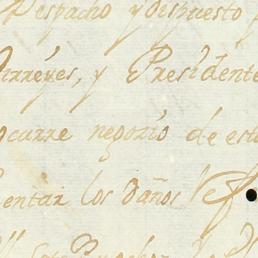 Despacho y dispuesto
Virréyes, y Presidente
ocurre negozio de est
entar los daños